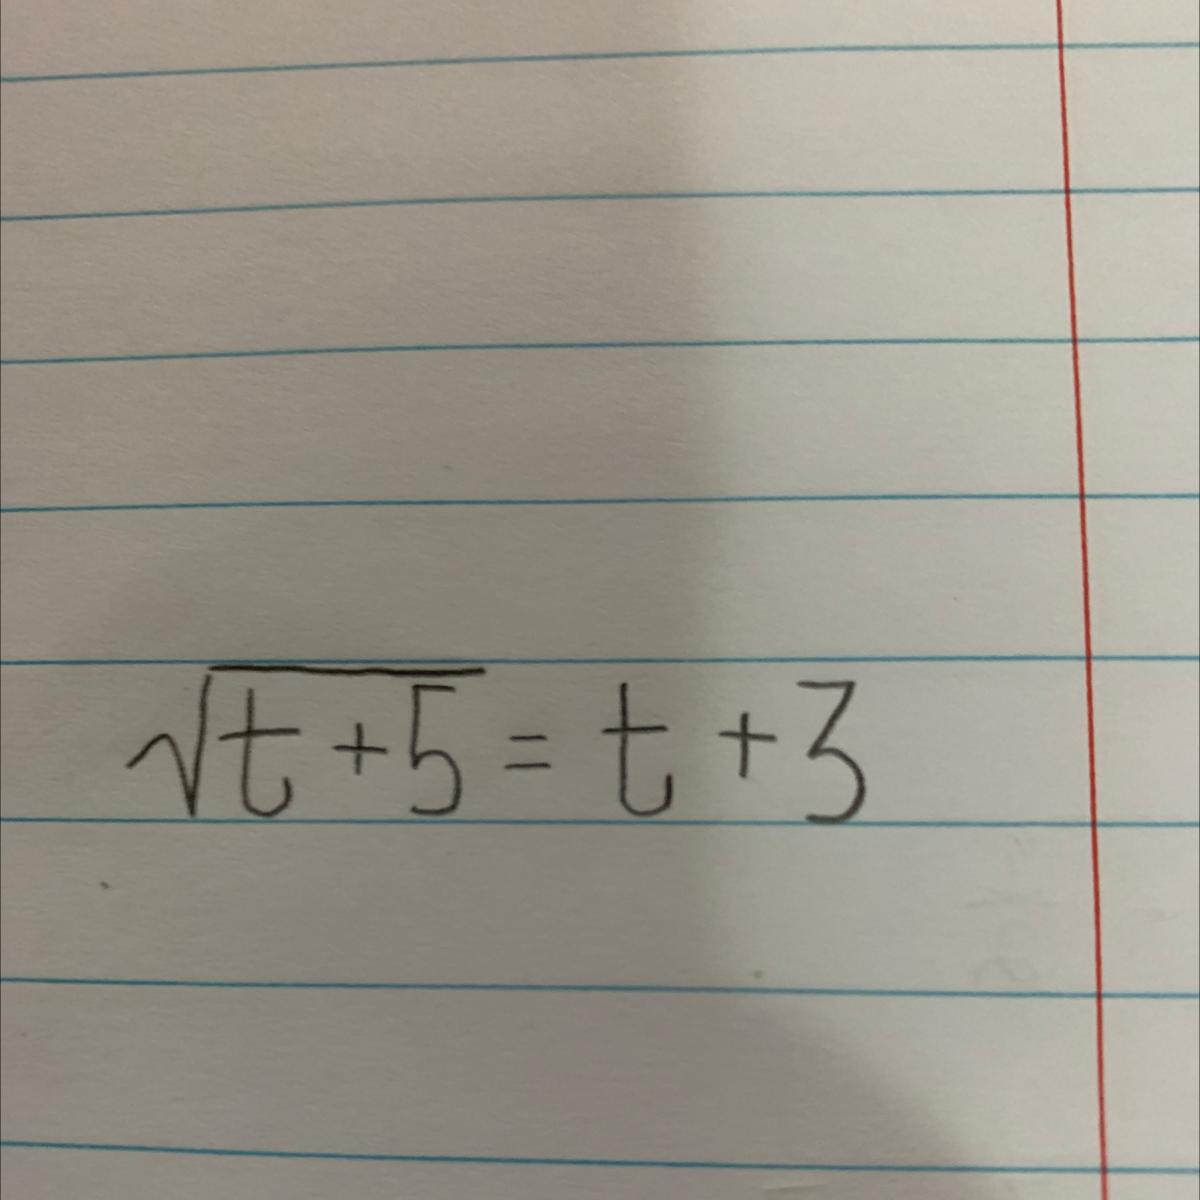 √(t+5) = t +3